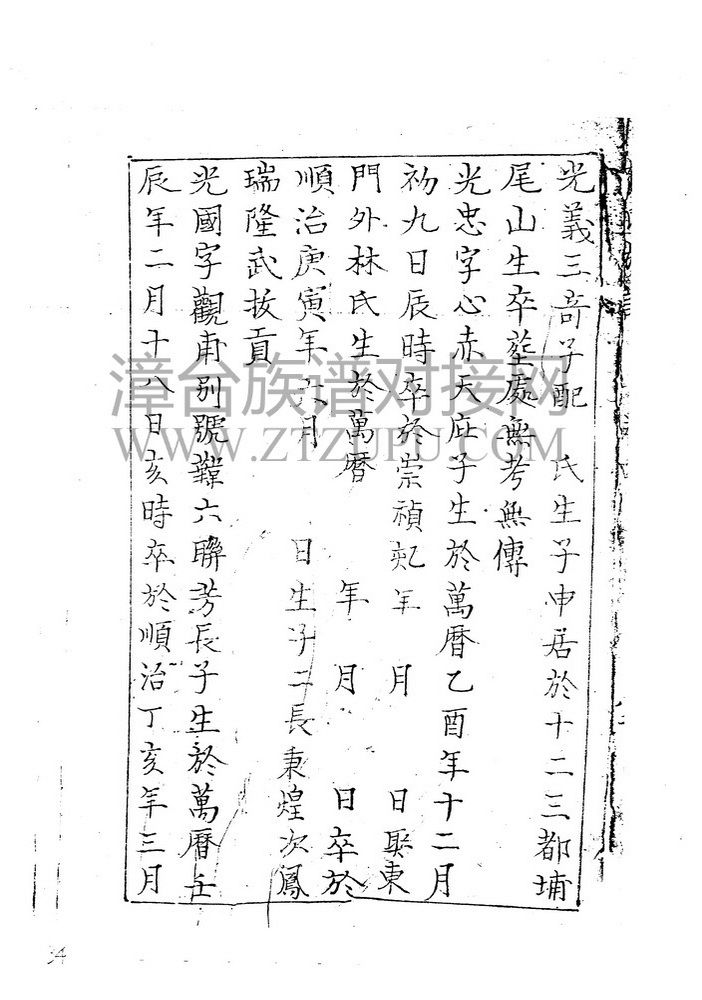 光義三奇子配　氏生子申居於十二三都埔
尾山生卒塟處無考無傳
光忠字心赤天庇子生於萬曆乙酉年十二月
初九日辰時卒於崇禎　年　月　日娶東
門外林氏生於萬曆　年　月　日卒於
順治庚寅年六月　日生子二長秉煌次鳳
瑞隆武拔貢
光國字觀甫别號　六聯芳長子生於萬曆壬
辰年二月十八日亥時卒於順治丁亥年三月
漳台族谱对接网
WWW.ZTZUPU.COM
34